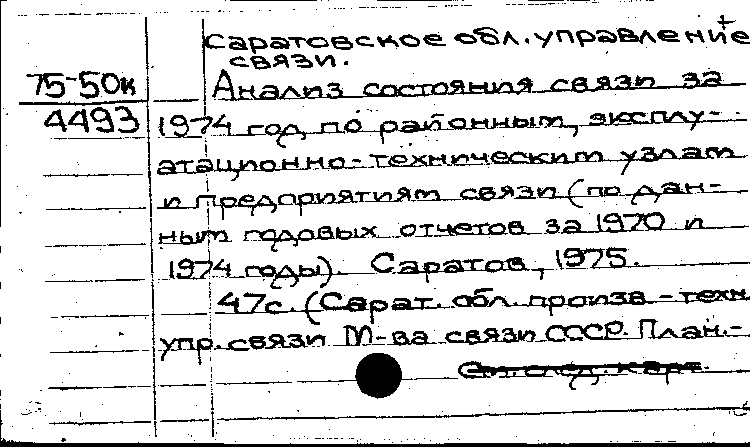 Саратовское обл. управление +
связи.
75-50к Анализ состояния связи за
4493 1974 год по районным, эксплу-
атационно-техническим узлам
и предприятиям связи (по дан-
ным годовых отчетов за 1970 и
1974 годы). Саратов, 1975.
47с. (Сарат. обл. произв-техн
упр. связи М-ва связи СССР. План.-
См. след. карт.